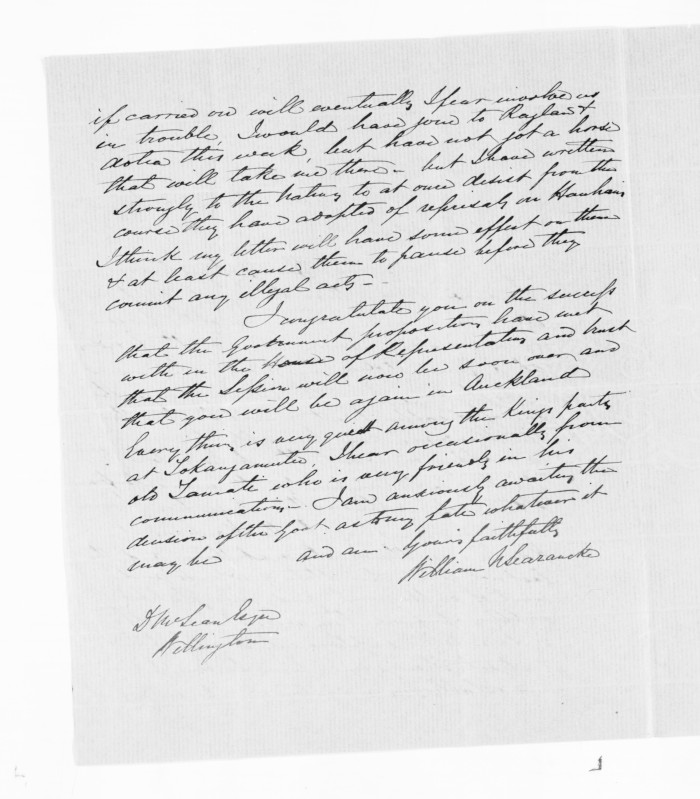 if carried on will eventually I fear involve us
in trouble, I would have gone to Raglan &
Aotea this week, but have not got a horse
that will take me there – but I have written
strongly to the natives to at once desist from the
course they have adopted of reprisals on Hauhaus
I think my letter will have some effect on them
& at least cause them to pause before they
commit any illegal acts –
I congratulate you on the success
that the Government propositions have met
with in the House of Representatives and trust
that the Session will now be soon over and
that you will be again in Auckland
Everything is very quiet among the Kings party
at Tokangamutu, I hear occasionally from
old Tamati who is very friendly in his
communications – I am anxiously awaiting the
decision of the Govt. as to my fate whatever it
may be and am Yours faithfully
William N Searancke
D McLean Esqre
Wellington